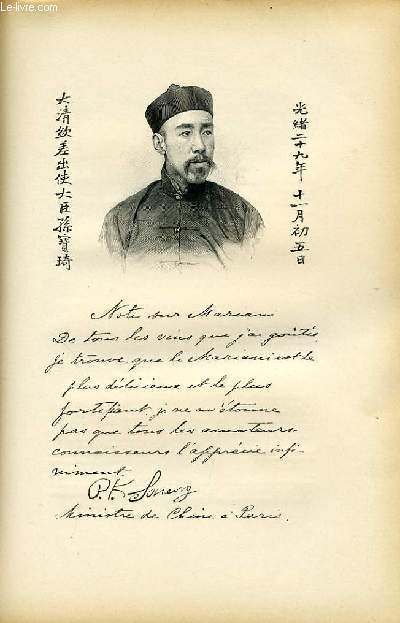 © Le-livre.com
大清欽差出使大臣孫寶琦
光緒二十九年 十一月初五日
Note sur Mariani
De tous les vins que j'ai goûtés,
je trouve que le Mariani est le
plus délicieux et le plus
fortifiant je ne m'étonne
pas que tous les amateurs
connaisseurs l'apprécie infi-
niment.
Ministre de Chine à Paris.